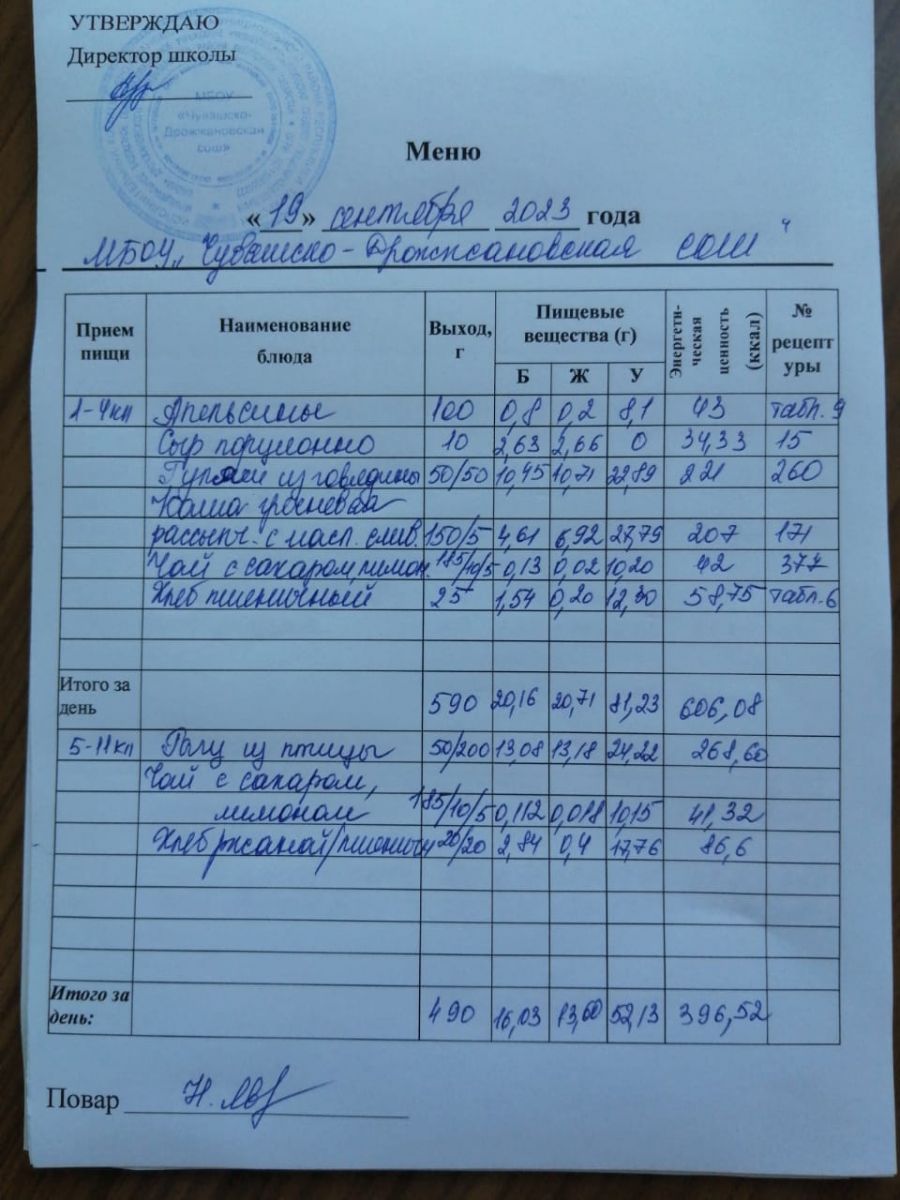 УТВЕРЖДАЮ
Директор школы
МБОУ
«Чувашско-
Дрожжановская
сош»
Меню
« 19 » сентября 2023 года
МБОУ „Чувашско-Дрожжановская СОШ"
Прием пищи Наименование блюда Выход, г Пищевые вещества (г) Энергети-ческая ценность (ккал) № рецепт уры
Б Ж У
1-4кл Апельсины 100 0,8 0,2 8,1 43 табл. 9
Сыр порционно 10 2,63 2,66 0 34,33 15
Гуляш из говядины 50/50 10,45 10,71 22,89 221 260
Каша гречневая
рассыпч. с масл. слив. 150/5 4,61 6,92 27,79 207 171
Чай с сахаром, лимон. 185/10/5 0,13 0,02 10,20 42 377
Хлеб пшеничный 25 1,54 0,20 12,30 58,75 табл. 6
Итого за день 590 20,16 20,71 81,23 606,08
5-11кл Рагу из птицы 50/200 13,08 13,18 24,22 268,60
Чай с сахаром,
лимоном 185/10/5 0,112 0,018 10,15 41,32
Хлеб ржаной/пшеничн 20/20 2,84 0,4 17,76 86,6
Итого за день: 490 16,03 13,60 52,13 396,52
Повар